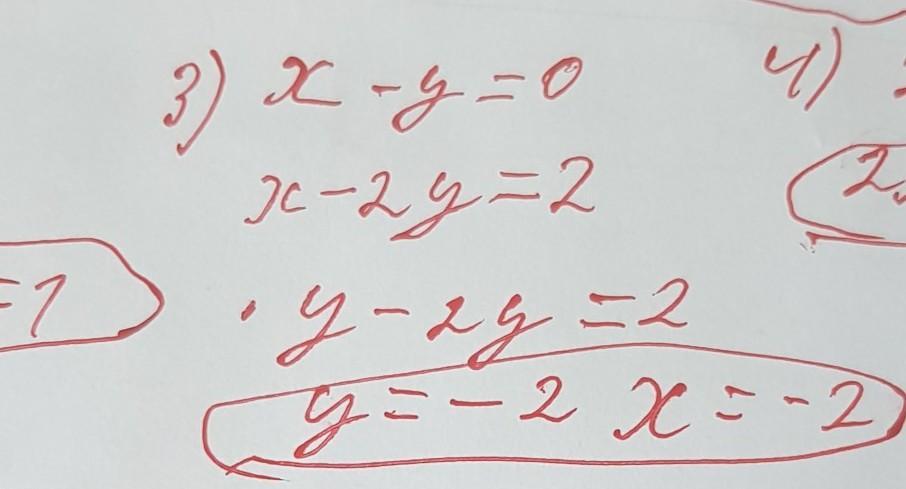 3) x - y = 0
x - 2y = 2
=1
· y - 2y = 2
y = - 2 x = - 2
4)
2